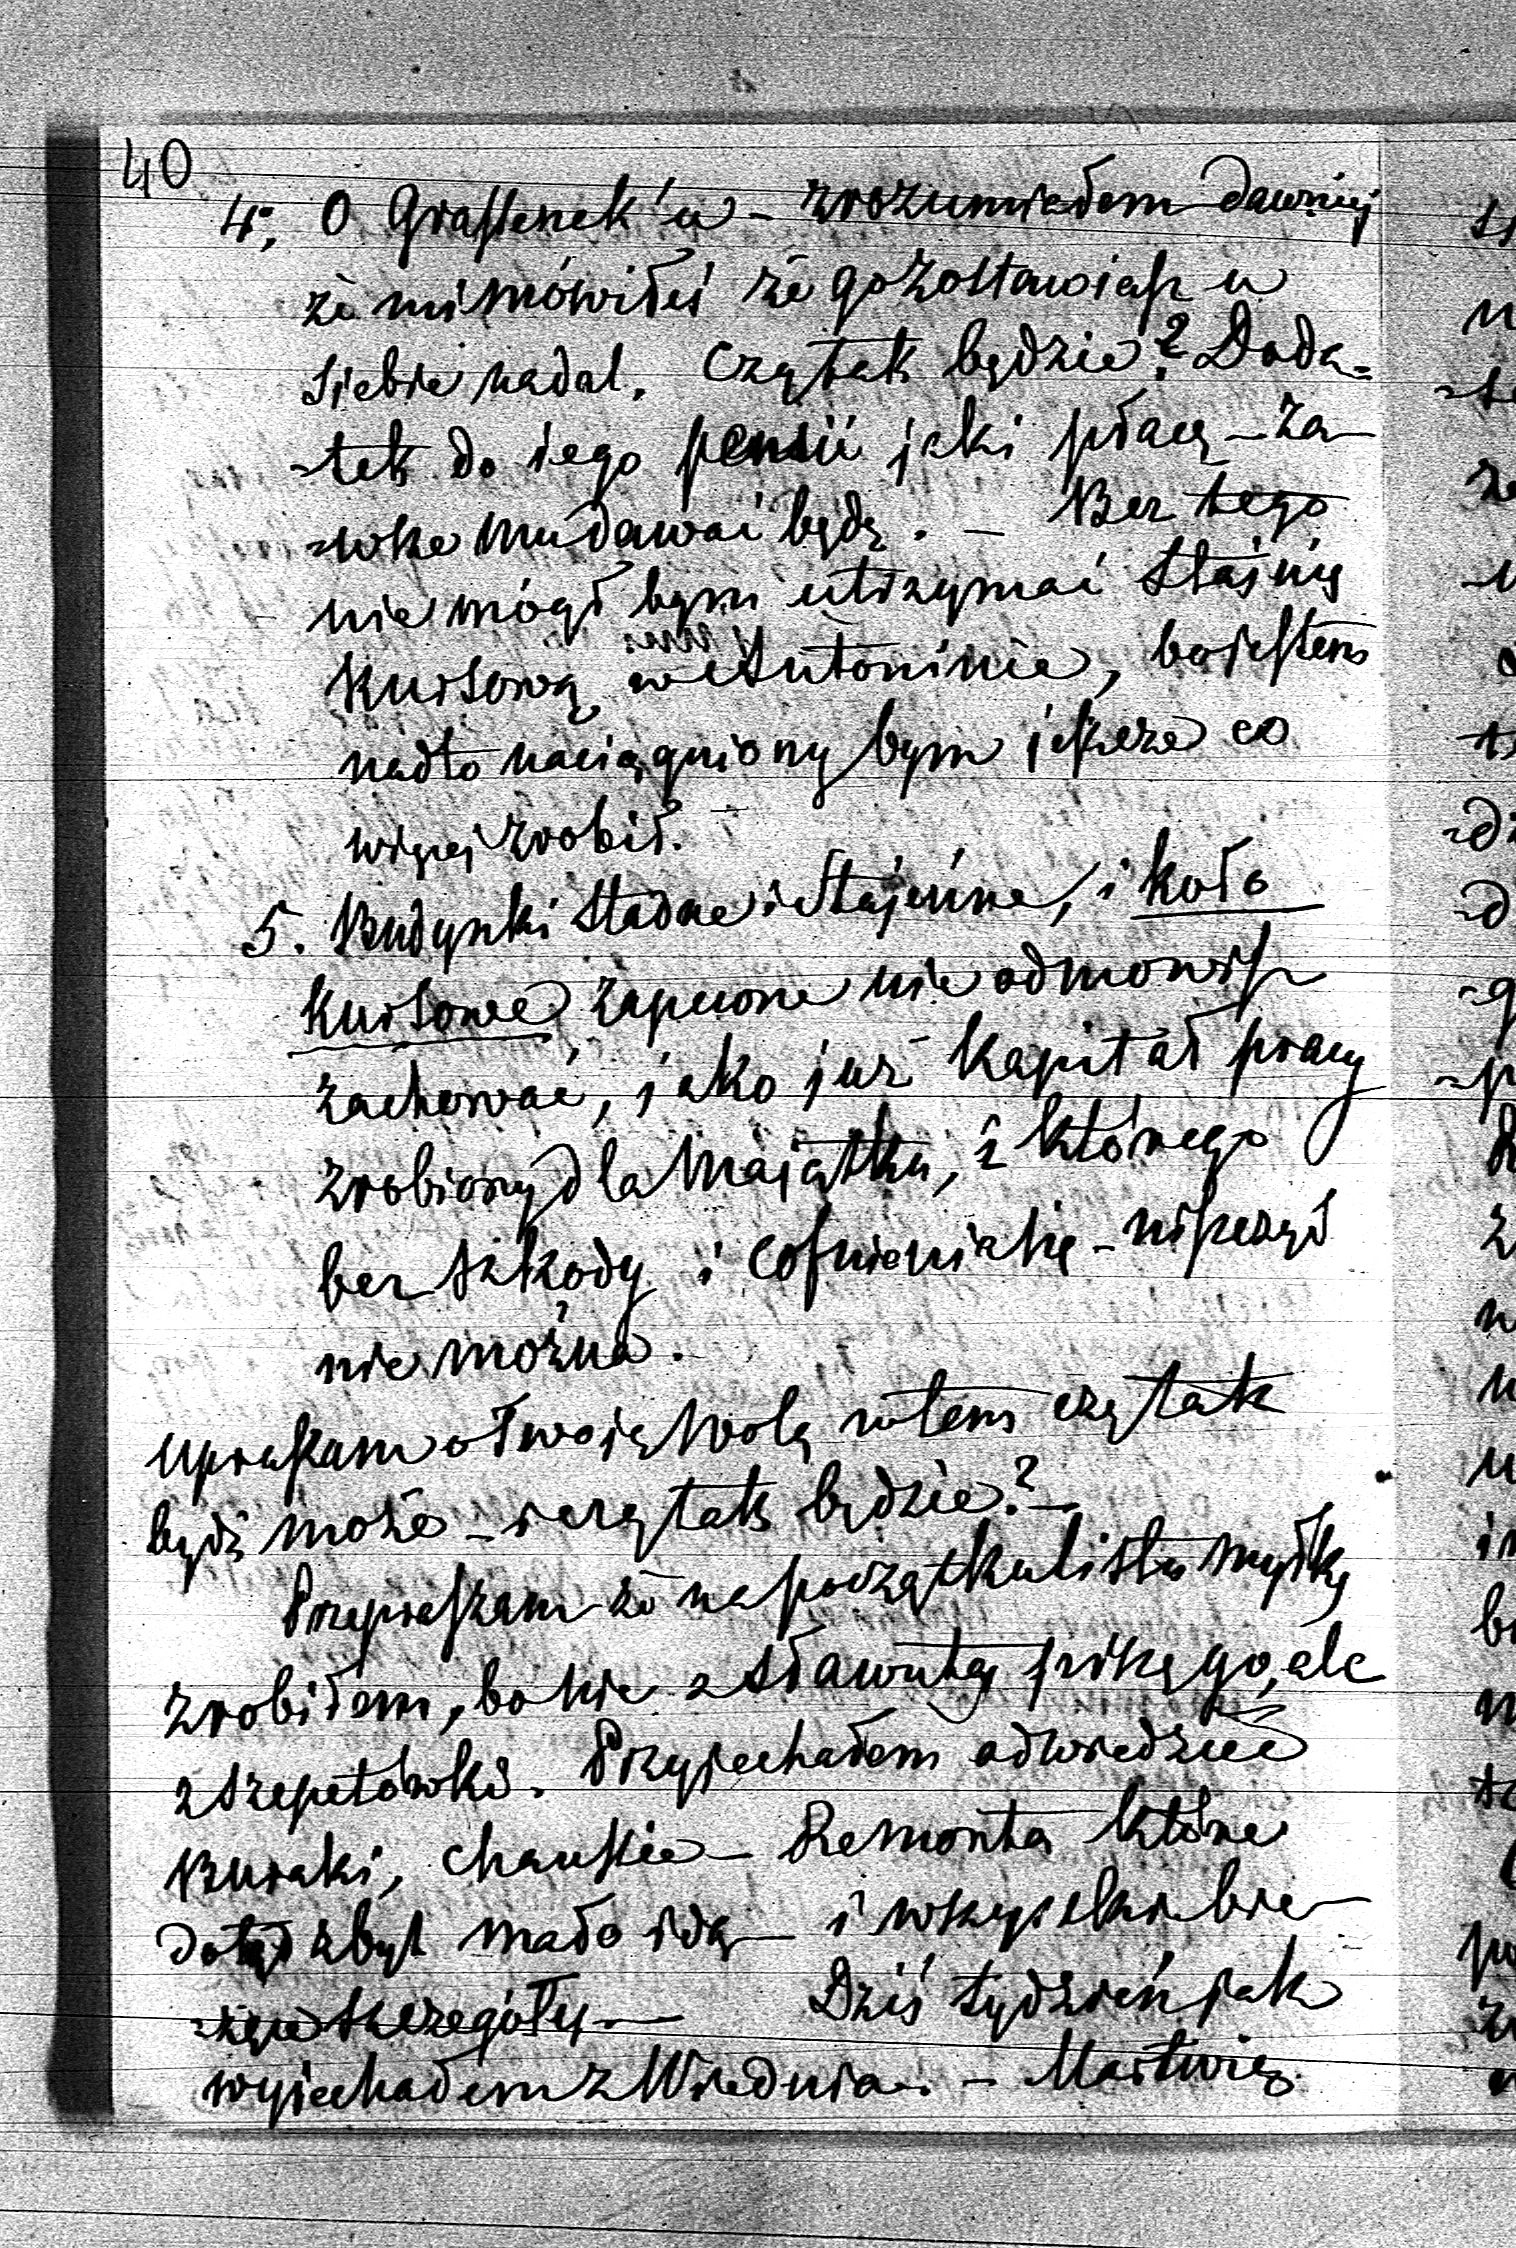 40
4; O Grassenek'u – zrozumiałem dawniej
że mi mówiłeś że go zostawiasz u
siebie nadal. Czy tak będzie? Doda=
=tek do jego pensii jaki płacę – za
=wsze mu dawać będę. – Bez tego
nie mógł bym utrzymać Stajnię
Kursową w Antoninie, bo jestem
nadto naciągniony bym jeszcze co
więcej zrobił. –
5. Budynki Stadne i Stajenne, i koło
Kursowe, zapewne nie odmowisz
zachować, jako już kapitał pracy
zrobiony dla Majątku, i którego
bez szkody i cofnienia się – niszczyć
nie można.
Upraszam o Twoją Wolę w tem czy tak
bydź może – i czy tak będzie? –
Przepraszam że na początku listu myłkę
zrobiłem, bo nie z Sławuty piszę go, ale
z Szepetówki. Przyjechałem odwiedzić
Buraki, Chaussée – Remonta które
dotąd zbyt mało idą – i wszystkie bie=
=żące szczegóły. – Dziś tydzień jak
wyjechałem z Wiednia. – Martwię